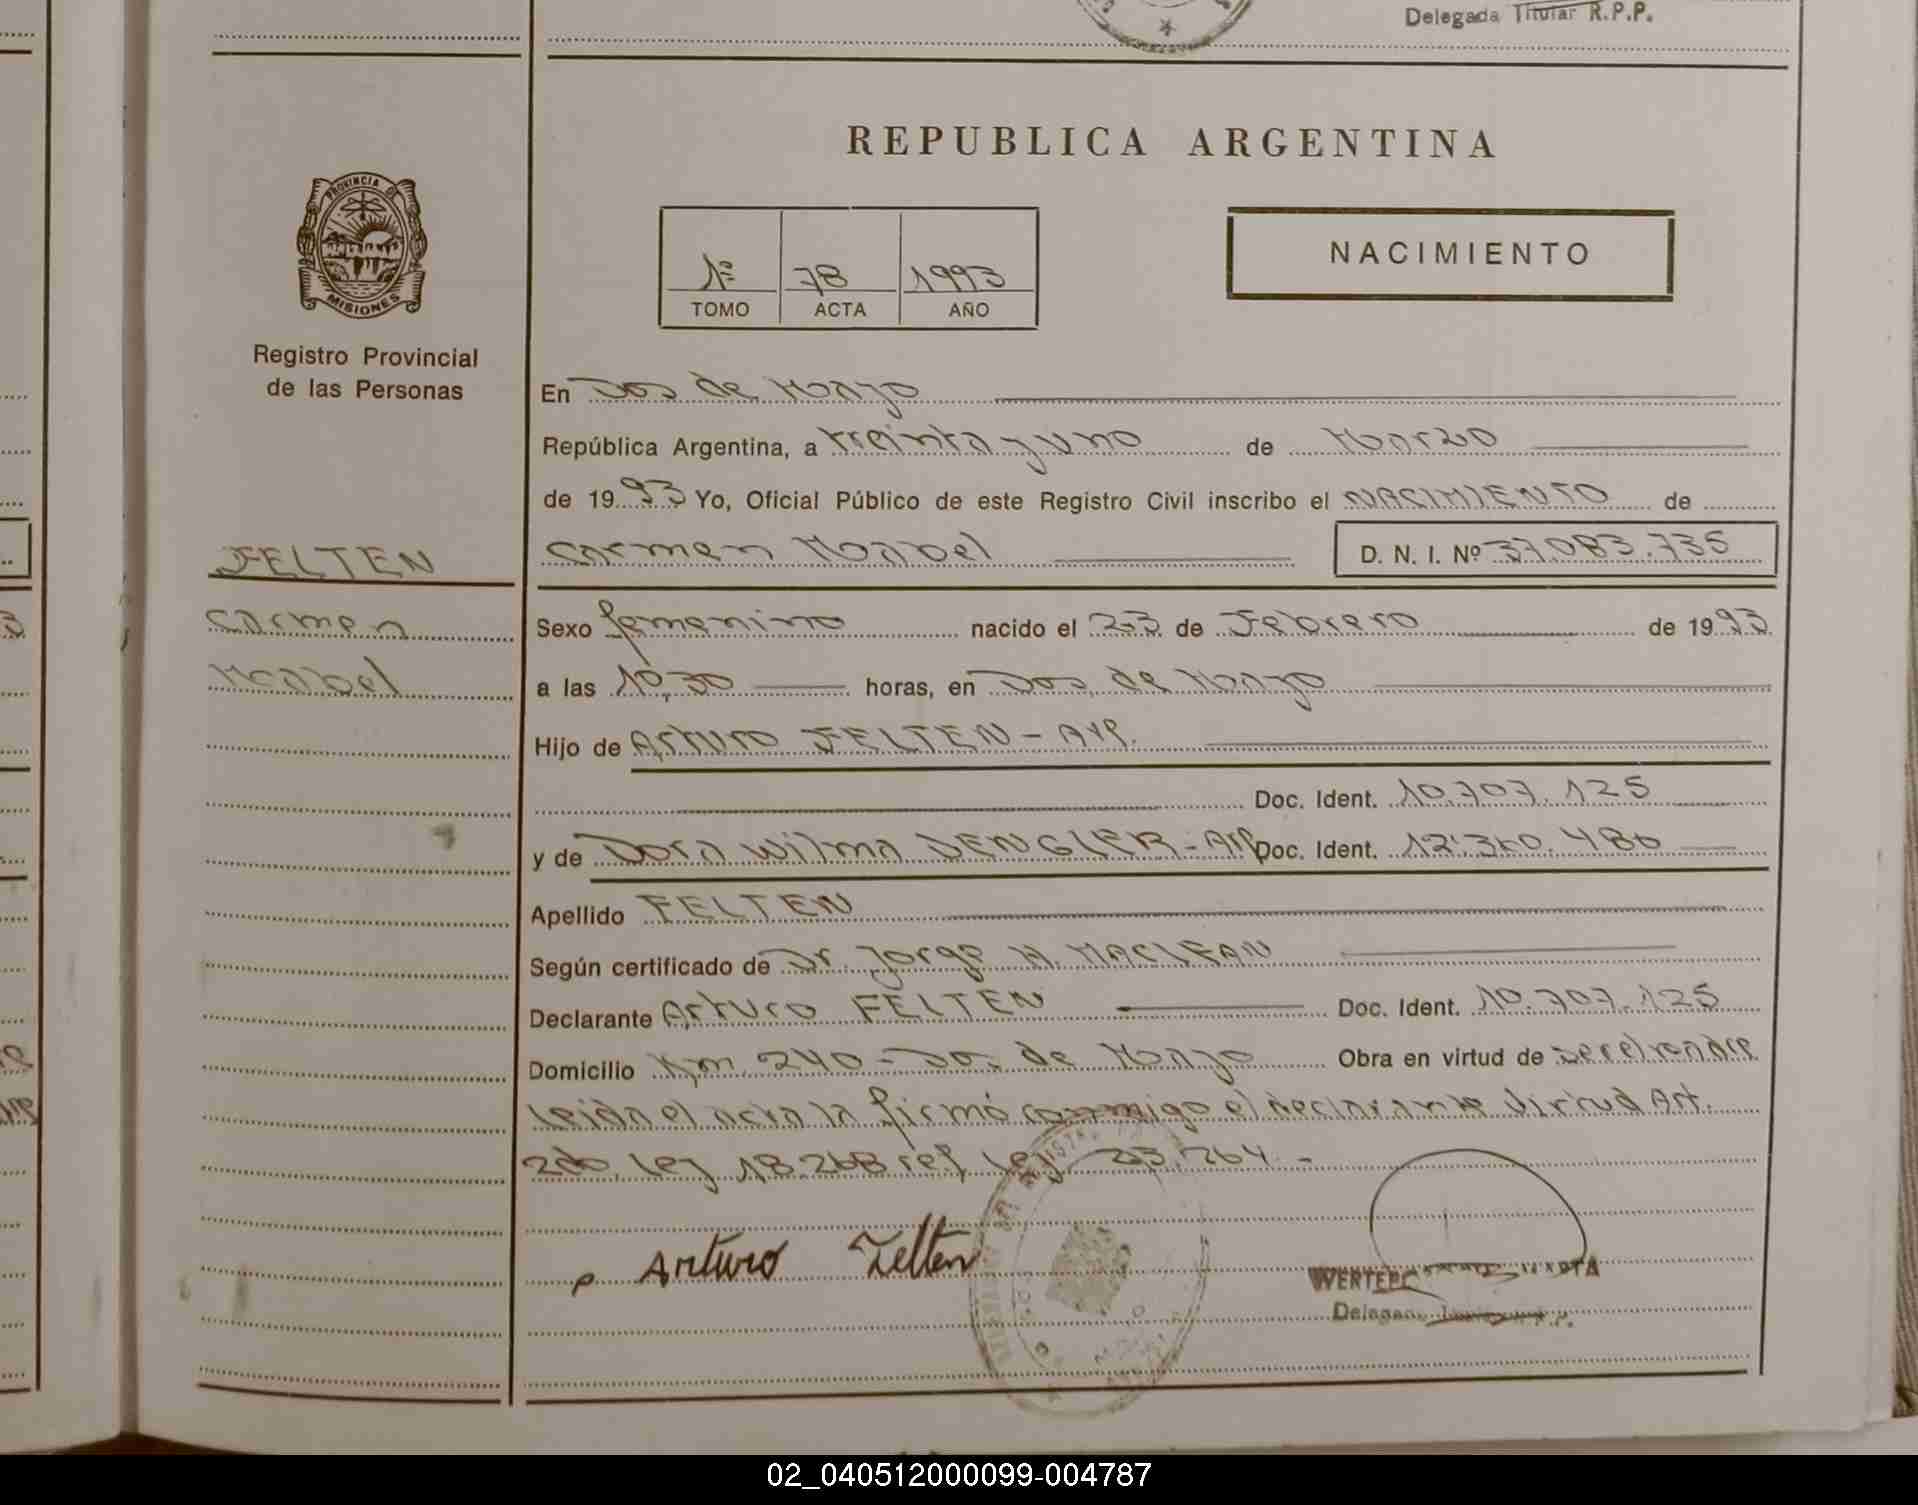 Delegada Titular R.P.P.
REPUBLICA ARGENTINA
PROVINCIA DE
MISIONES
Registro Provincial
de las Personas
1º 78 1993
TOMO ACTA AÑO
NACIMIENTO
En Dos de Mayo
República Argentina, a treinta y uno de Marzo
de 1993 Yo, Oficial Público de este Registro Civil inscribo el NACIMIENTO de
FELTEN
Carmen Mabel D. N. I. Nº 37.083.735
Carmen
Mabel
Sexo femenino nacido el 23 de Febrero de 1993
a las 10,30 horas, en Dos de Mayo
Hijo de Arturo FELTEN - Arg.
Doc. Ident. 10.707.125
y de Dora Wilma DENGLER - Arg. Doc. Ident. 12.360.486
Apellido FELTEN
Según certificado de Dr. Jorge H. MACLEAN
Declarante Arturo FELTEN Doc. Ident. 10.707.125
Domicilio Km. 240 - Dos de Mayo Obra en virtud de ser el padre
Leida el acta la firmó conmigo el declarante Virtud Art.
2do. Ley 18.268 ref Ley 23.264. -
Arturo Felten
02_040512000099-004787